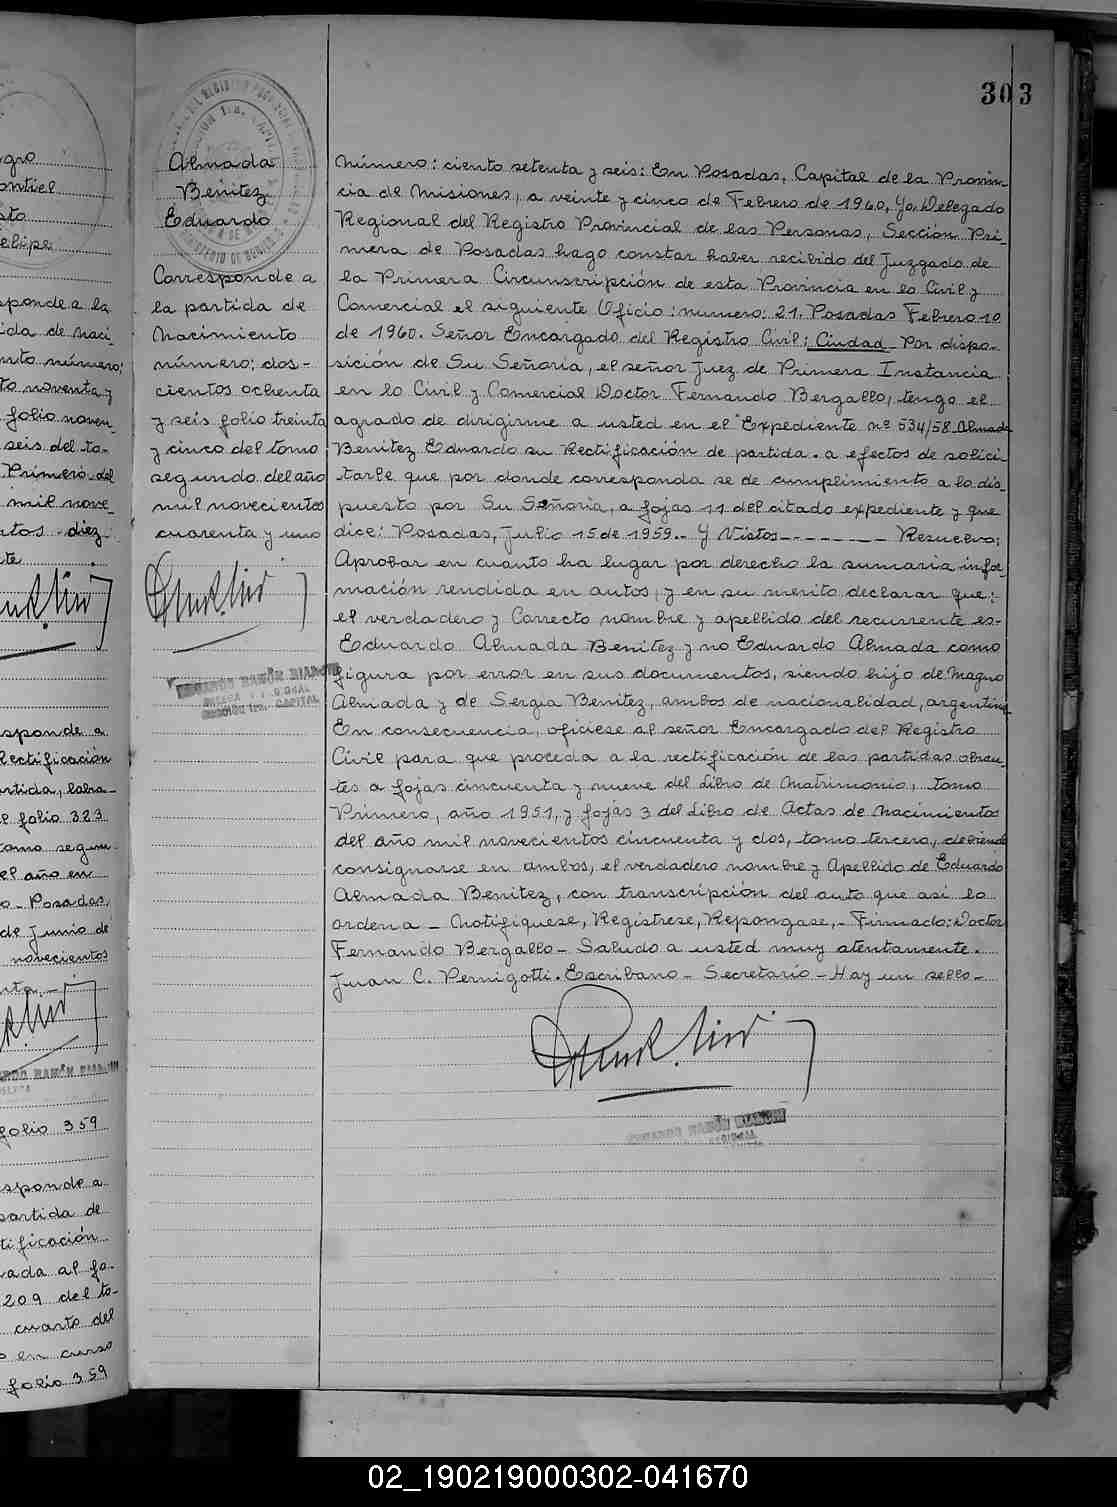 303
Almada
Benitez
Eduardo
Corresponde a
la partida de
Nacimiento
número; dos-
cientos ochenta
y seis folio treinta
y cinco del tomo
segundo del año
mil novecientos
cuarenta y uno
EDUARDO RAMÓN BIANCHI
SECCIÓN 1ra. CAPITAL
Número: ciento setenta y seis: En Posadas, Capital de la Provin-
cia de Misiones, a veinte y cinco de Febrero de 1960, Yo, Delegado
Regional del Registro Provincial de las Personas, Sección Pri-
mera de Posadas hago constar haber recibido del Juzgado de
la Primera Circunscripción de esta Provincia en lo Civil y
Comercial el siguiente Oficio: número: 21. Posadas Febrero 10
de 1960. Señor Encargado del Registro Civil: Ciudad Por dispo-
sición de Su Señoria, el señor Juez de Primera Instancia
en lo Civil y Comercial Doctor Fernando Bergallo, tengo el
agrado de dirigirme a usted en el "Expediente nº 534/58 Almada
Benitez Eduardo su Rectificación de partida. a efectos de solici-
tarle que por donde corresponda se de cumplimiento a lo dis-
puesto por Su Señoria, a fojas 11 del citado expediente y que
dice: Posadas, Julio 15 de 1959.. Y Vistos-------- Resuelvo:
Aprobar en cuanto ha lugar por derecho la sumaria infor-
mación rendida en autos, y en su merito declarar que:
el verdadero y Correcto nombre y apellido del recurrente es-
Eduardo Almada Benitez y no Eduardo Almada como
figura por error en sus documentos, siendo hijo de Magno
Almada y de Sergia Benitez, ambos de nacionalidad, argentina
En consecuencia, ofíciese al señor Encargado del Registro
Civil para que proceda a la rectificación de las partidas obran-
tes a fojas cincuenta y nueve del Libro de Matrimonio, tomo
Primero, año 1951, y fojas 3 del Libro de Actas de Nacimientos
del año mil novecientos cincuenta y dos, tomo tercero, debiendo
consignarse en ambos, el verdadero nombre y Apellido de Eduardo
Almada Benitez, con transcripción del auto que asi lo
ordena - Notifiquese, Registrese, Repongase,- Firmado: Doctor
Fernando Bergallo - Saludo a usted muy atentamente.
Juan C. Pernigotti. Escribano - Secretario - Hay un sello-
EDUARDO RAMÓN BIANCHI
REGIONAL
sponde a la
ida de naci-
nto número;
to noventa y
folio noven-
seis del to-
Primero del
mil nove-
diez
sponde a
Rectificación
rtida, labra-
l folio 323
tomo segun-
el año en
o- Posadas,
de Junio de
novecientos
folio 359
sponde a
partida de
tificación
ada al fo-
209 del to-
cuarto del
o en curso
folio 359
02_190219000302-041670